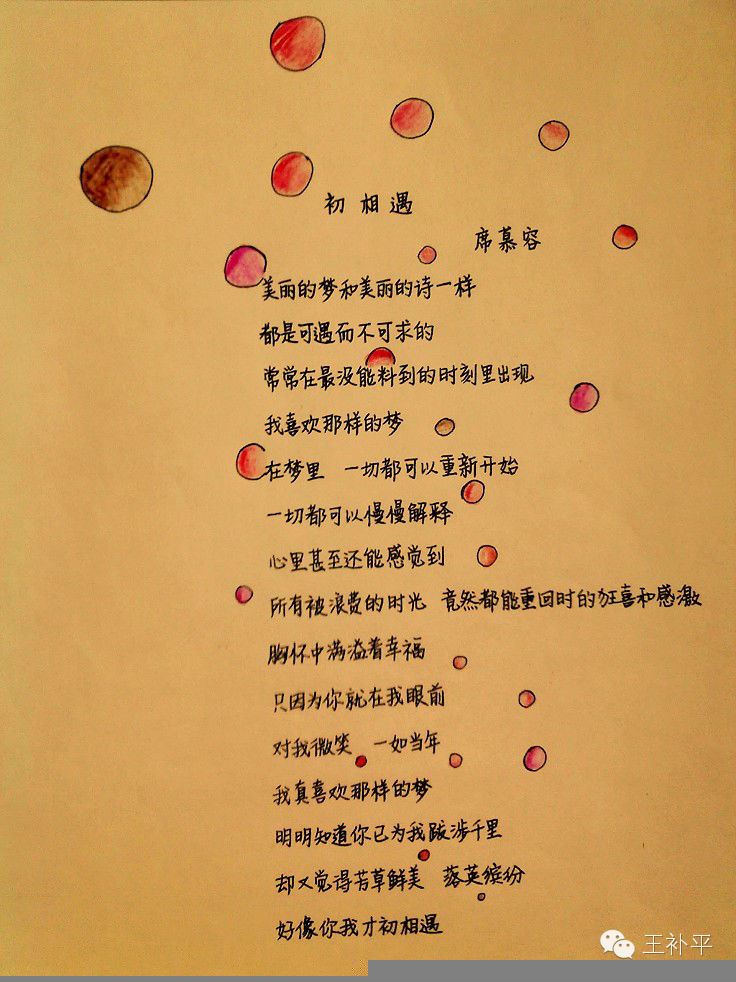 初相遇
席慕容
美丽的梦和美丽的诗一样
都是可遇而不可求的
常常在最没能料到的时刻里出现
我喜欢那样的梦
在梦里 一切都可以重新开始
一切都可以慢慢解释
心里甚至还能感觉到
所有被浪费的时光 竟然都能重回时的狂喜和感激
胸怀中满溢着幸福
只因为你就在我眼前
对我微笑 一如当年
我真喜欢那样的梦
明明知道你已为我跋涉千里
却又觉得芳草鲜美 落英缤纷
好像你我才初相遇
王补平